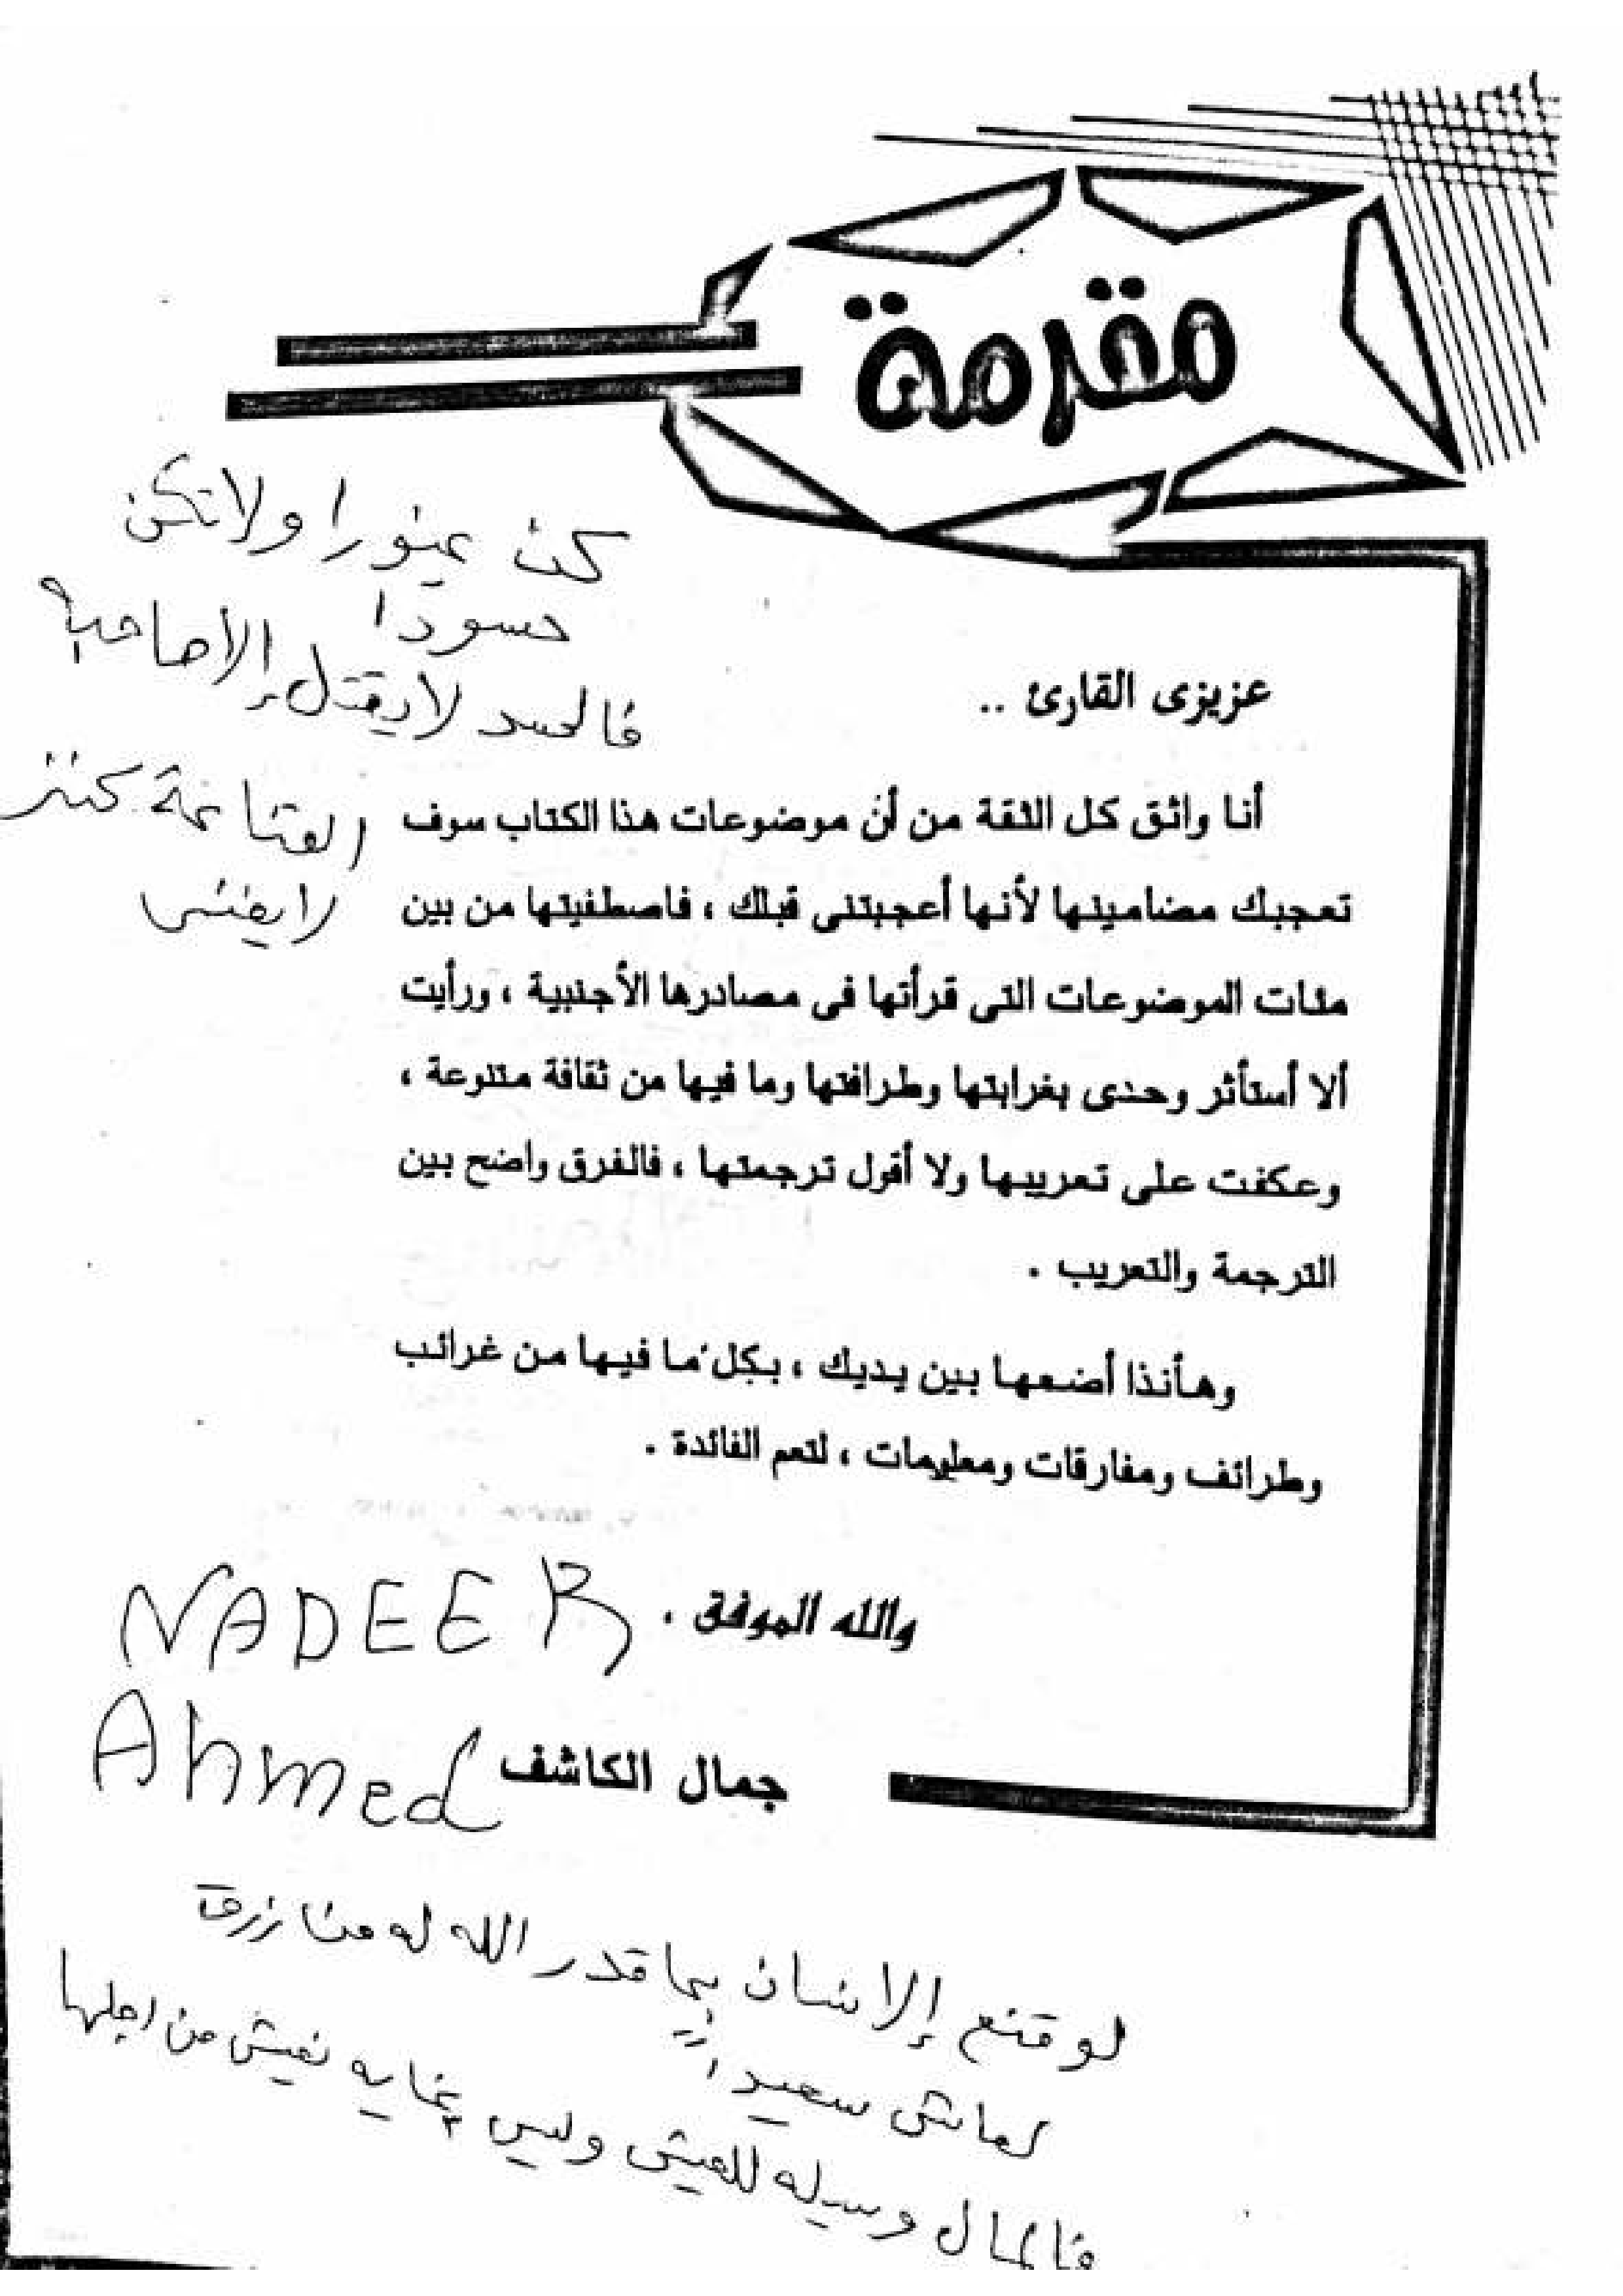 مقدمة
كن غيورا ولاتكن
حسودا
فالحسد لايقتل إلا صاحبه
القناعة كنز
لايفنى
عزيزى القارئ ..
أنا واثق كل الثقة من أن موضوعات هذا الكتاب سوف
تعجبك مضامينها لأنها أعجبتنى قبلك ، فاصطفيتها من بين
مئات الموضوعات التى قرأتها فى مصادرها الأجنبية ، ورأيت
ألا أستأثر وحدى بغرابتها وطرافتها وما فيها من ثقافة متنوعة ،
وعكفت على تعريبها ولا أقول ترجمتها ، فالفرق واضح بين
الترجمة والتعريب .
وهأنذا أضعها بين يديك ، بكل ما فيها من غرائب
وطرائف ومفارقات ومعلومات ، لتعم الفائدة .
والله الموفق .
NADEER
جمال الكاشف
Ahmed
لو قنع إلانسان بما قدر الله له من رزق
لعاش سعيدا
فالمال وسيله للعيش وليس غايه نعيش من اجلها